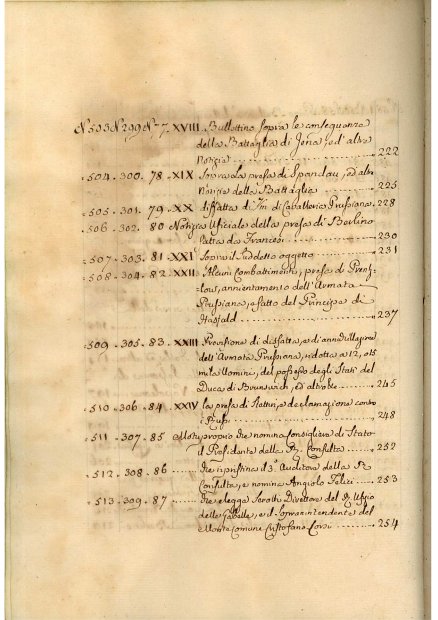 N 503 N 299 N 77. XVIII. Bullettino sopra le conseguenze
della Battaglia di Jena, ed altre
Notizie 222
504. 300. 78 XIX Sopra la presa di Spandau, ed altre
Notizie della Battaglia 225
505. 301. 79. XX disfatta di di Cavalleria Prussiana. 228
506. 302. 80 Notizia Uficiale della presa di Berlino
fatta da Francesi 230
507. 303. 81 XXI Sopra il suddetto oggetto 231
508. 304. 82. XXII. Alcuni Combattimenti, presa di Prenz-
lous, annientamento dell'Armata
Prussiana, e fatto del Principe di
Hasfeld 237
509. 305. 83. XXIII di disfatta, e di
dell'Armata Prussiana, ridotta a 12, o 15
mila Uomini, del possesso degli Stati del
Duca di Brunswich, ed altro 245
510. 306. 84. XXIV la presa di Stettin, e declamazione contro
i Russi 248
511. 307. 85 Motuproprio che nomina Consigliere di Stato
il Presidente della R. Consulta 252
512. 308. 86 che ripristina il 3.° Auditore della R.
Consulta, e nomina Angiolo Felici 253
513. 309. 87 che elegge Seratti Direttore del R. Ufizio
delle Gabelle, e il Soprintendente del
Monte Comune Cristofano Corsi 254